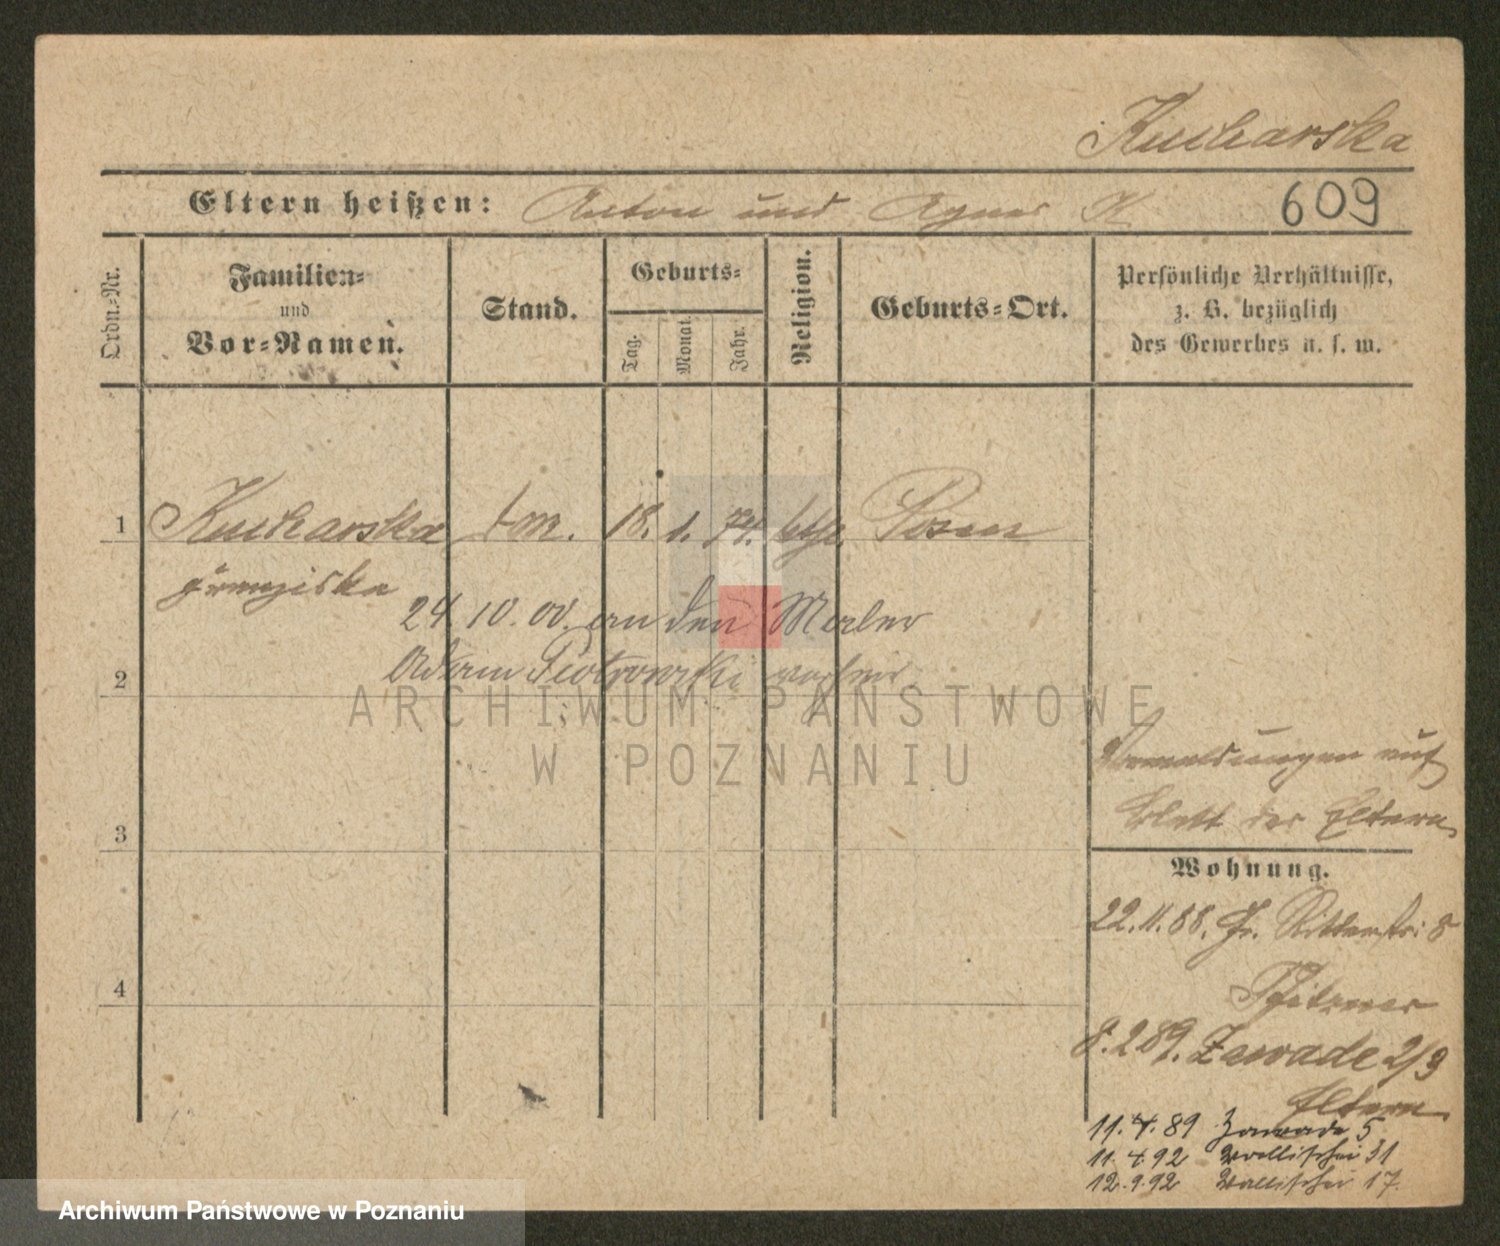 Kucharska
Eltern heißen: Anton und Agnes K
609
Ordn.-Nr.
Familien-
und
Vor-Namen.
Stand.
Geburts-
Tag.
Monat.
Jahr.
Religion.
Geburts-Ort.
Persönliche Verhältnisse,
z. B. bezüglich
des Gewerbes u. s. w.
1 Kucharska 18. 1. 74. Posen
Franziska
24.10.00. an den Maler
Adam Piotrowski
2
ARCHIWUM PAŃSTWOWE
W POZNANIU
auf
Blatt der Eltern
3
Wohnung.
22.11.88. Gr. Ritterstr. 8
Pfitzner
4
8.2 89. Zawade 2/3
Eltern
11.4.89 Zawade 5
11.4.92 Wallischei 31
12.9.92 Wallischei 17.
Archiwum Państwowe w Poznaniu